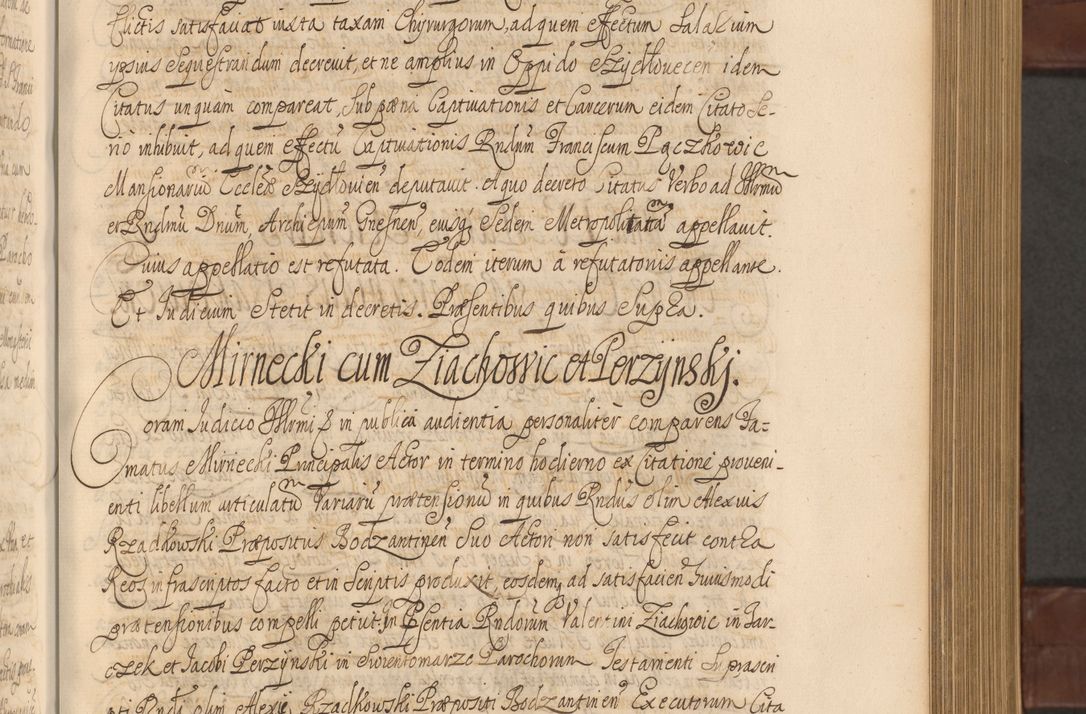 flictis satisfaciat iuxta taxam Chyrurgorum, ad quem effectum Salarium
ypsius Sequestrandum decrevit, et ne amplius in Oppido Szydłowecen idem
Citatus unquam compareat, Sub pæna Captivationis et Carcerum eidem Citato Se-
rio inhibuit, ad quem effectū Captivationis Rndum Franciscum Pączkowic
Mansionariū Eccleæ Szydłovien deputavit. A quo decreto Citatus Verbo ad Illrmū
et Rndmū Dnum, Archiepum Gnesnen, eiusq Sedem Metropolitanā appellavit.
Cuius appellatio est refutata. Eodem iterum à refutatonis appellante.
Et Iudicium Stetit in decretis. Præsentibus quibus Supra.
Mirnecki cum Ziachowic et Perzynskj.
Coram Iudicio Illrmi & in publica audientia personaliter comparens Fa-
matus Mirnecki Principalis Actor in termino hodierno ex Citatione proveni-
enti libellum articulatū Variarū prætensionū in quibus Rndus olim Alexius
Rzadkowski Præpositus Bodzantinen Suo Actori non satisfecit contra
Reos infrascriptos facto et in Scriptis produxit, eosdemq ad satisfacien huiusmodi
prætensionibus compelli petiit. In Psentia Rndorum Valentini Ziachowic in Jar-
czek et Jacobi Perzynski in Swientomarze Parochorum Testamenti Suprascri
pti Rndi olim Alexie Rzadkowski Præpositi Bodzantinen Executorum Cita